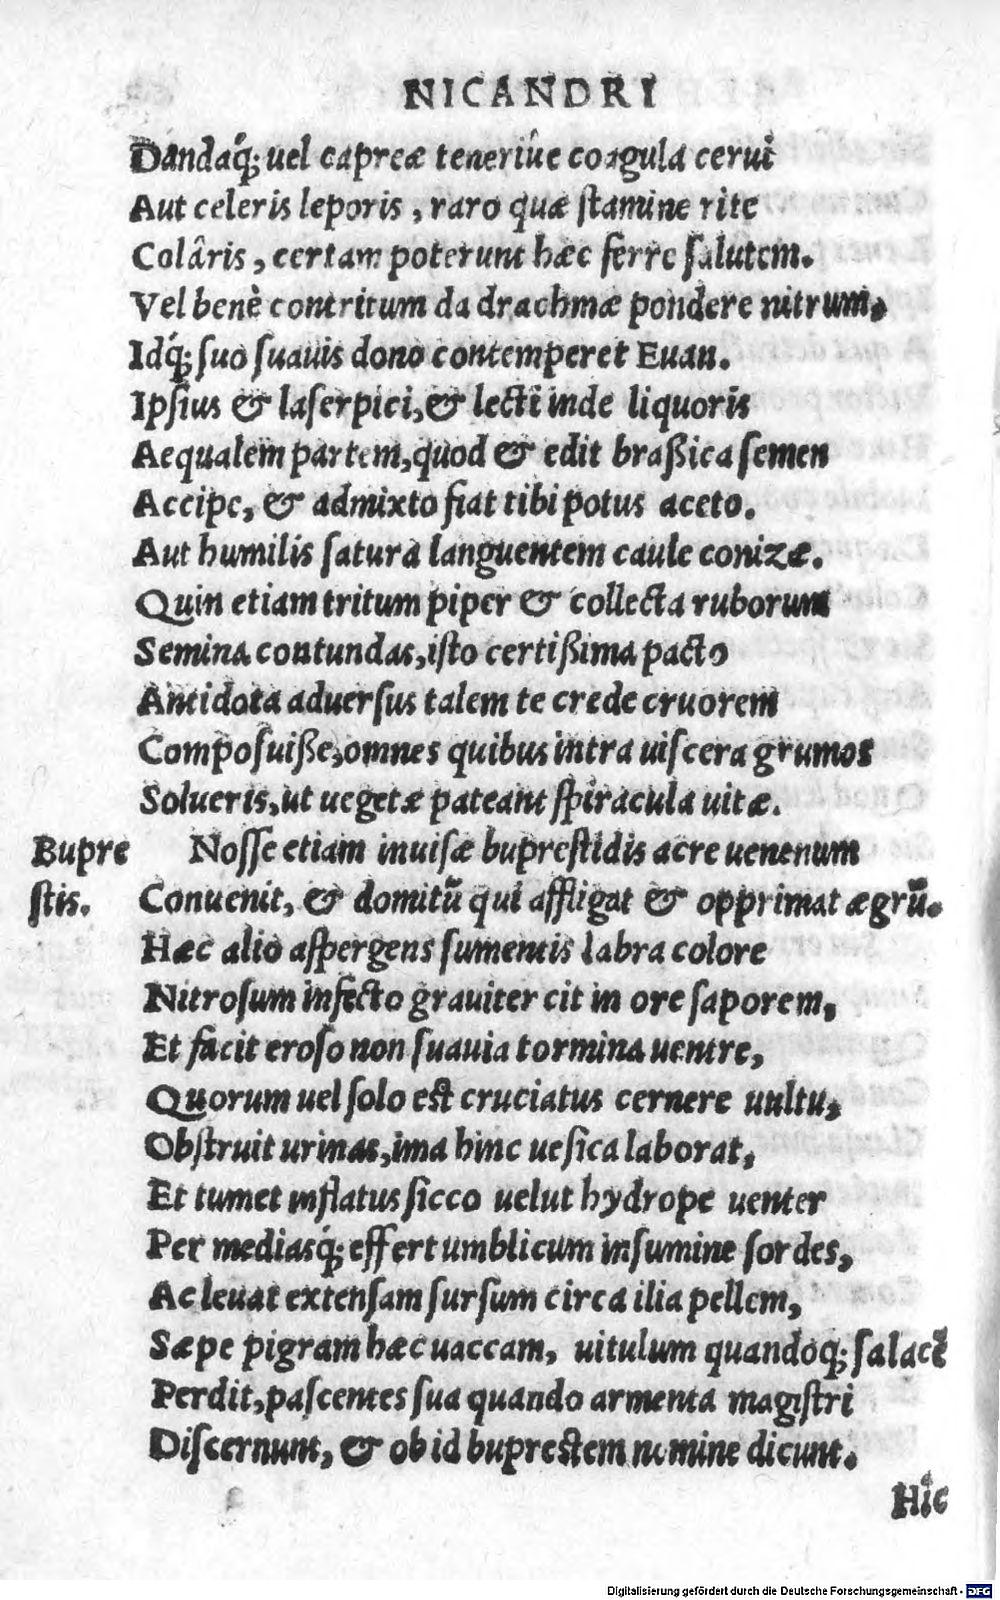 NICANDRI
Dandaq́; uel capreæ teneriúe coagula cerui
Aut celeris leporis, raro quæ ſtamine rite
Colâris, certam poterunt hæc ferre ſalutem.
Vel benè contritum da drachmæ pondere nitrum,
Idq́; ſuo ſuauis dono contemperet Euan.
Ipſius & laſerpici, & lecti inde liquoris
Aequalem partem, quod & edit braßica ſemen
Accipe, & admixto fiat tibi potus aceto.
Aut humilis ſatura languentem caule conizæ.
Quin etiam tritum piper & collecta ruborum
Semina contundas, iſto certißima pacto
Antidota aduerſus talem te crede cruorem
Compoſuiße, omnes quibus intra uiſcera grumos
Solueris, ut uegetæ pateant ſpiracula uitæ.
Bupre Noſſe etiam inuiſæ bupreſtidis acre uenenum
ſtis. Conuenit, & domitū qui affligat & opprimat ægrū.
Hæc alio aſpergens ſumentis labra colore
Nitroſum infecto grauiter cit in ore ſaporem,
Et facit eroſo non ſuauia tormina uentre,
Quorum uel ſolo eſt cruciatus cernere uultu,
Obſtruit urinas, ima hinc ueſica laborat,
Et tumet inflatus ſicco uelut hydrope uenter
Per mediasq́; effert umblicum inſumine ſordes,
Ac leuat extenſam ſurſum circa ilia pellem,
Sæpe pigram hæc uaccam, uitulum quandoq; ſalacē
Perdit, paſcentes ſua quando armenta magiſtri
Diſcernunt, & ob id bupreſtem nomine dicunt.
Hic
Digitalisierung gefördert durch die Deutsche Forschungsgemeinschaft - DFG